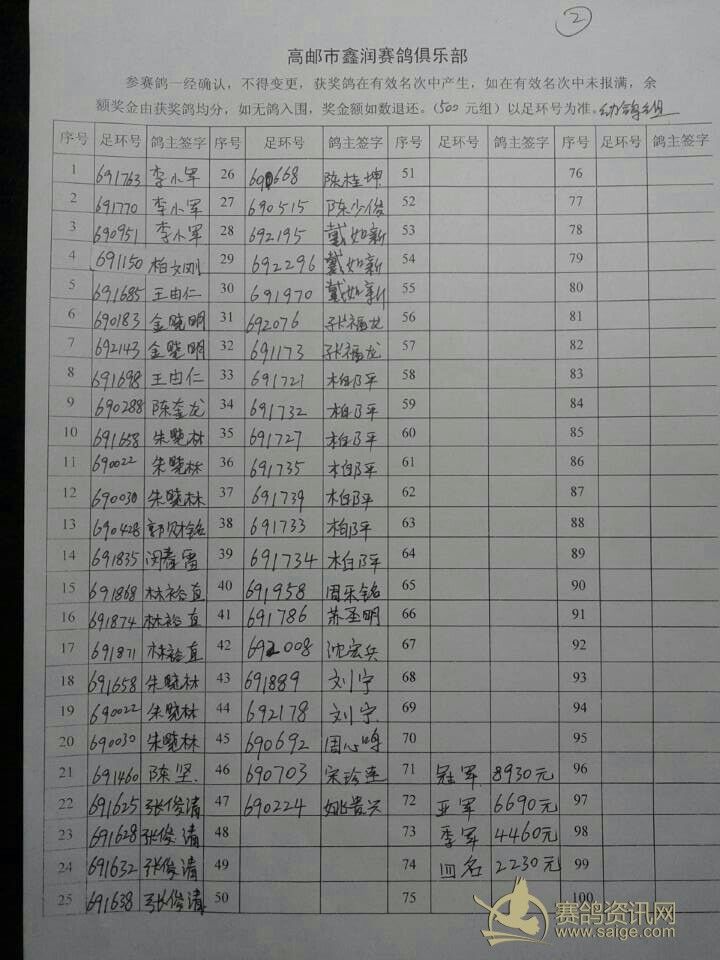 2
高邮市鑫润赛鸽俱乐部
参赛鸽一经确认，不得变更，获奖鸽在有效名次中产生，如在有效名次中未报满，余
额奖金由获奖鸽均分，如无鸽入围，奖金额如数退还。（500 元组）以足环号为准。幼鸽组
序号 足环号 鸽主签字 序号 足环号 鸽主签字 序号 足环号 鸽主签字 序号 足环号 鸽主签字
1 691763 李小军 26 690668 陈桂坤 51 76
2 691770 李小军 27 690515 陈少俊 52 77
3 690951 李小军 28 692195 戴如新 53 78
4 691150 柏文刚 29 692296 戴如新 54 79
5 691685 王由仁 30 691970 戴如新 55 80
6 690183 金晓明 31 692076 张福龙 56 81
7 692143 金晓明 32 691173 张福龙 57 82
8 691698 王由仁 33 691721 柏邵平 58 83
9 690288 陈奎龙 34 691732 柏邵平 59 84
10 691658 朱晓林 35 691727 柏邵平 60 85
11 690022 朱晓林 36 691735 柏邵平 61 86
12 690030 朱晓林 37 691739 柏邵平 62 87
13 690428 郭财铭 38 691733 柏邵平 63 88
14 691835 闵春雷 39 691734 柏邵平 64 89
15 691868 林裕直 40 691958 周乐铭 65 90
16 691874 林裕直 41 691786 苏圣明 66 91
17 691871 林裕直 42 692008 沈宏兵 67 92
18 691658 朱晓林 43 691889 刘宁 68 93
19 690022 朱晓林 44 692178 刘宁 69 94
20 690030 朱晓林 45 690692 周心鸣 70 95
21 691460 陈坚 46 690703 宋珍连 71 冠军 8930元 96
22 691625 张俊清 47 690224 姚贵兴 72 亚军 6690元 97
23 691628 张俊清 48 73 季军 4460元 98
24 691632 张俊清 49 74 四名 2230元 99
25 691638 张俊清 50 75 100
赛鸽资讯网
www.saige.com